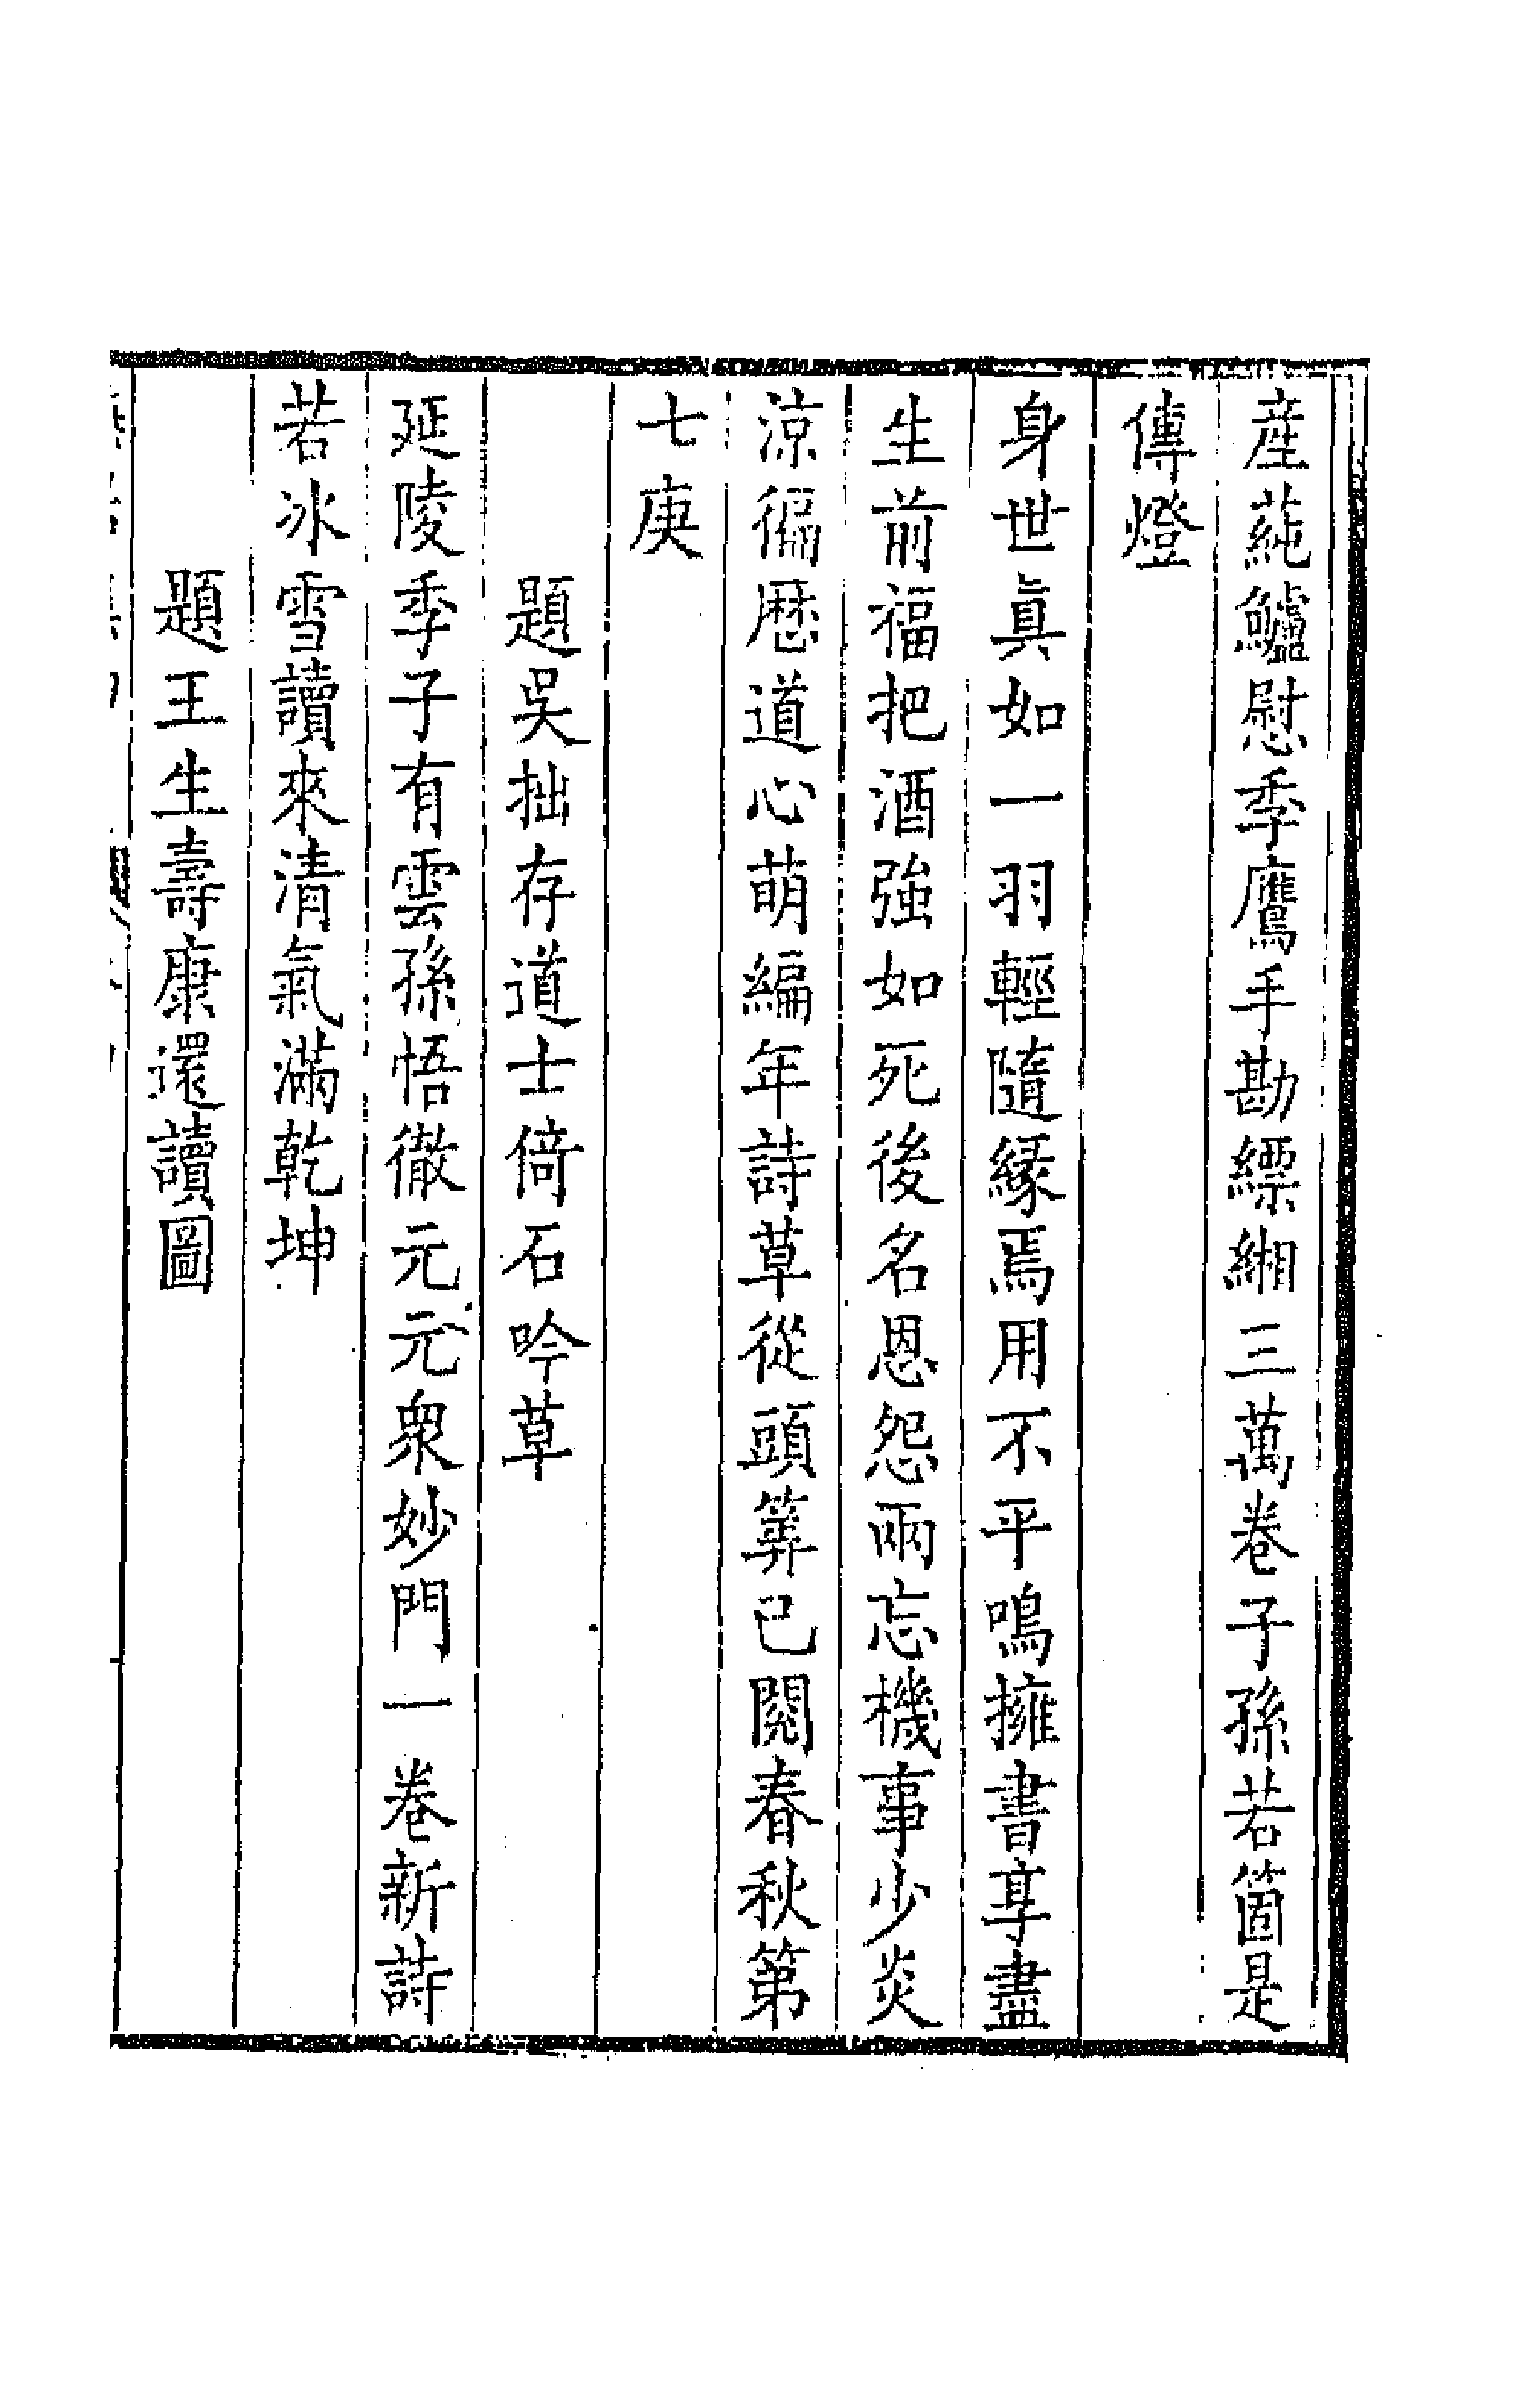 産蒓鱸慰季鷹手勘縹緗三萬卷子孫若箇是
傳燈
身世眞如一羽輕隨緣焉用不平鳴擁書享盡
生前福把酒強如死後名恩怨兩忘機事少炎
涼徧歴道心萌編年詩草從頭筭已閱春秋第
七庚
題吳拙存道士倚石吟草
延陵季子有雲孫悟徹元元衆妙門一卷新詩
若冰雪讀來清氣滿乾坤
題王生壽康還讀圖